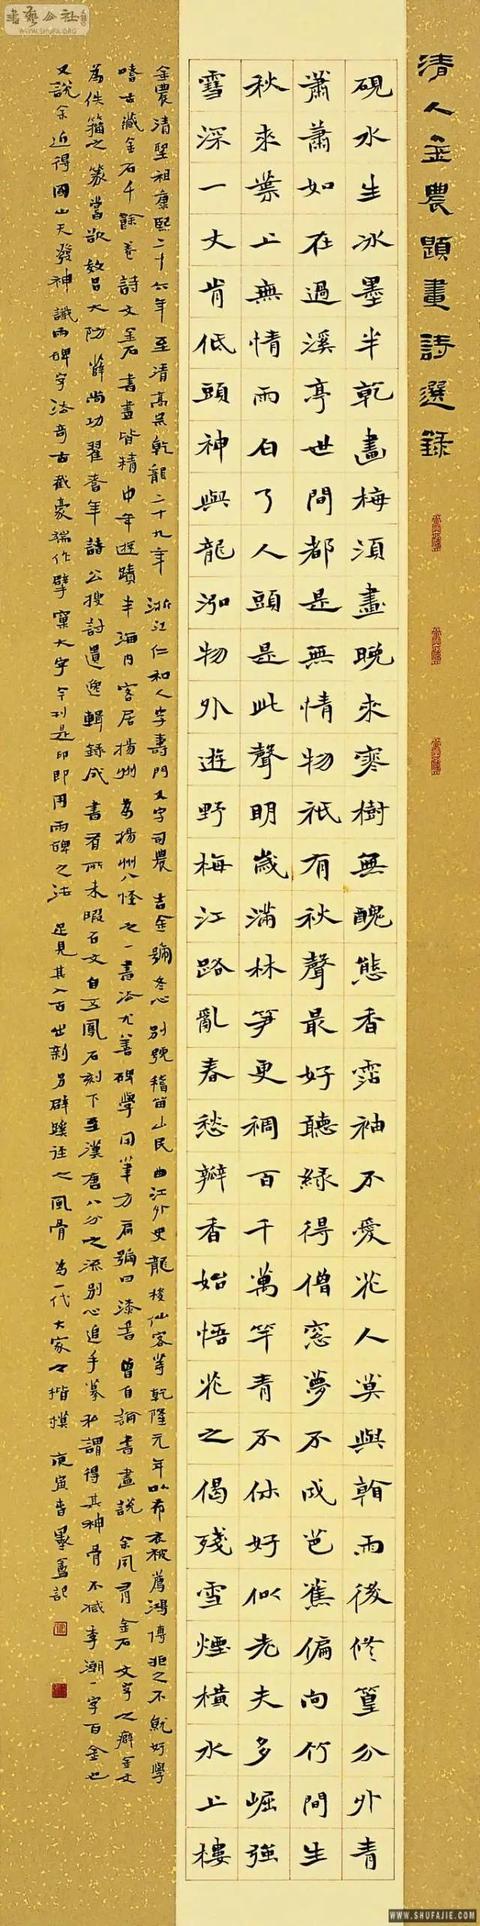 清人金農題畫詩選錄
硯水生冰墨半乾畫梅須畫晚來寒樹無醜態香霑袖不愛花人莫與翰雨後修篁分外青
蕭蕭如在過溪亭世間都是無情物祇有秋聲最好聽綠得僧窓夢不成芭蕉偏向竹間生
秋來葉上無情雨白了人頭是此聲明歲滿林笋更稠百千萬竿青不休好似老夫多崛強
雪深一丈肯低頭神與龍泓物外遊野梅江路亂春愁瓣香始悟花之偈殘雪煙橫水上樓
金農清聖祖康熙二十六年至清高宗乾龍二十九年浙江仁和人字壽門又字司農吉金號冬心別號稽留山民曲江外史龍梭仙客等乾隆元年以布衣被薦鴻博之不就好學
嗜古藏金石千餘卷詩文金石書畫皆精中年遊蹟半海内客居揚州為揚州八怪之一書法尤善碑學用筆方扁號曰漆書曾自論書畫說余夙有金石文字之癖金文
為佚籀之篆嘗欲效呂大防薛尚功翟耆年諸公搜討遺逸輯錄成書有所未暇石文自五鳳石刻下至漢唐八分之流別心追手摹私謂得其神骨不減李潮一字百金也
又說余近得國山天發神讖兩碑字法奇古截豪端作擘窠大字今刊是印即用兩碑之法足見其入古出新另辟蹊徑之風骨為一代大家々楷模庚寅春墨盦記
書藝公社
WWW.SHUFA.ORG
WWW.SHUFAJIE.COM